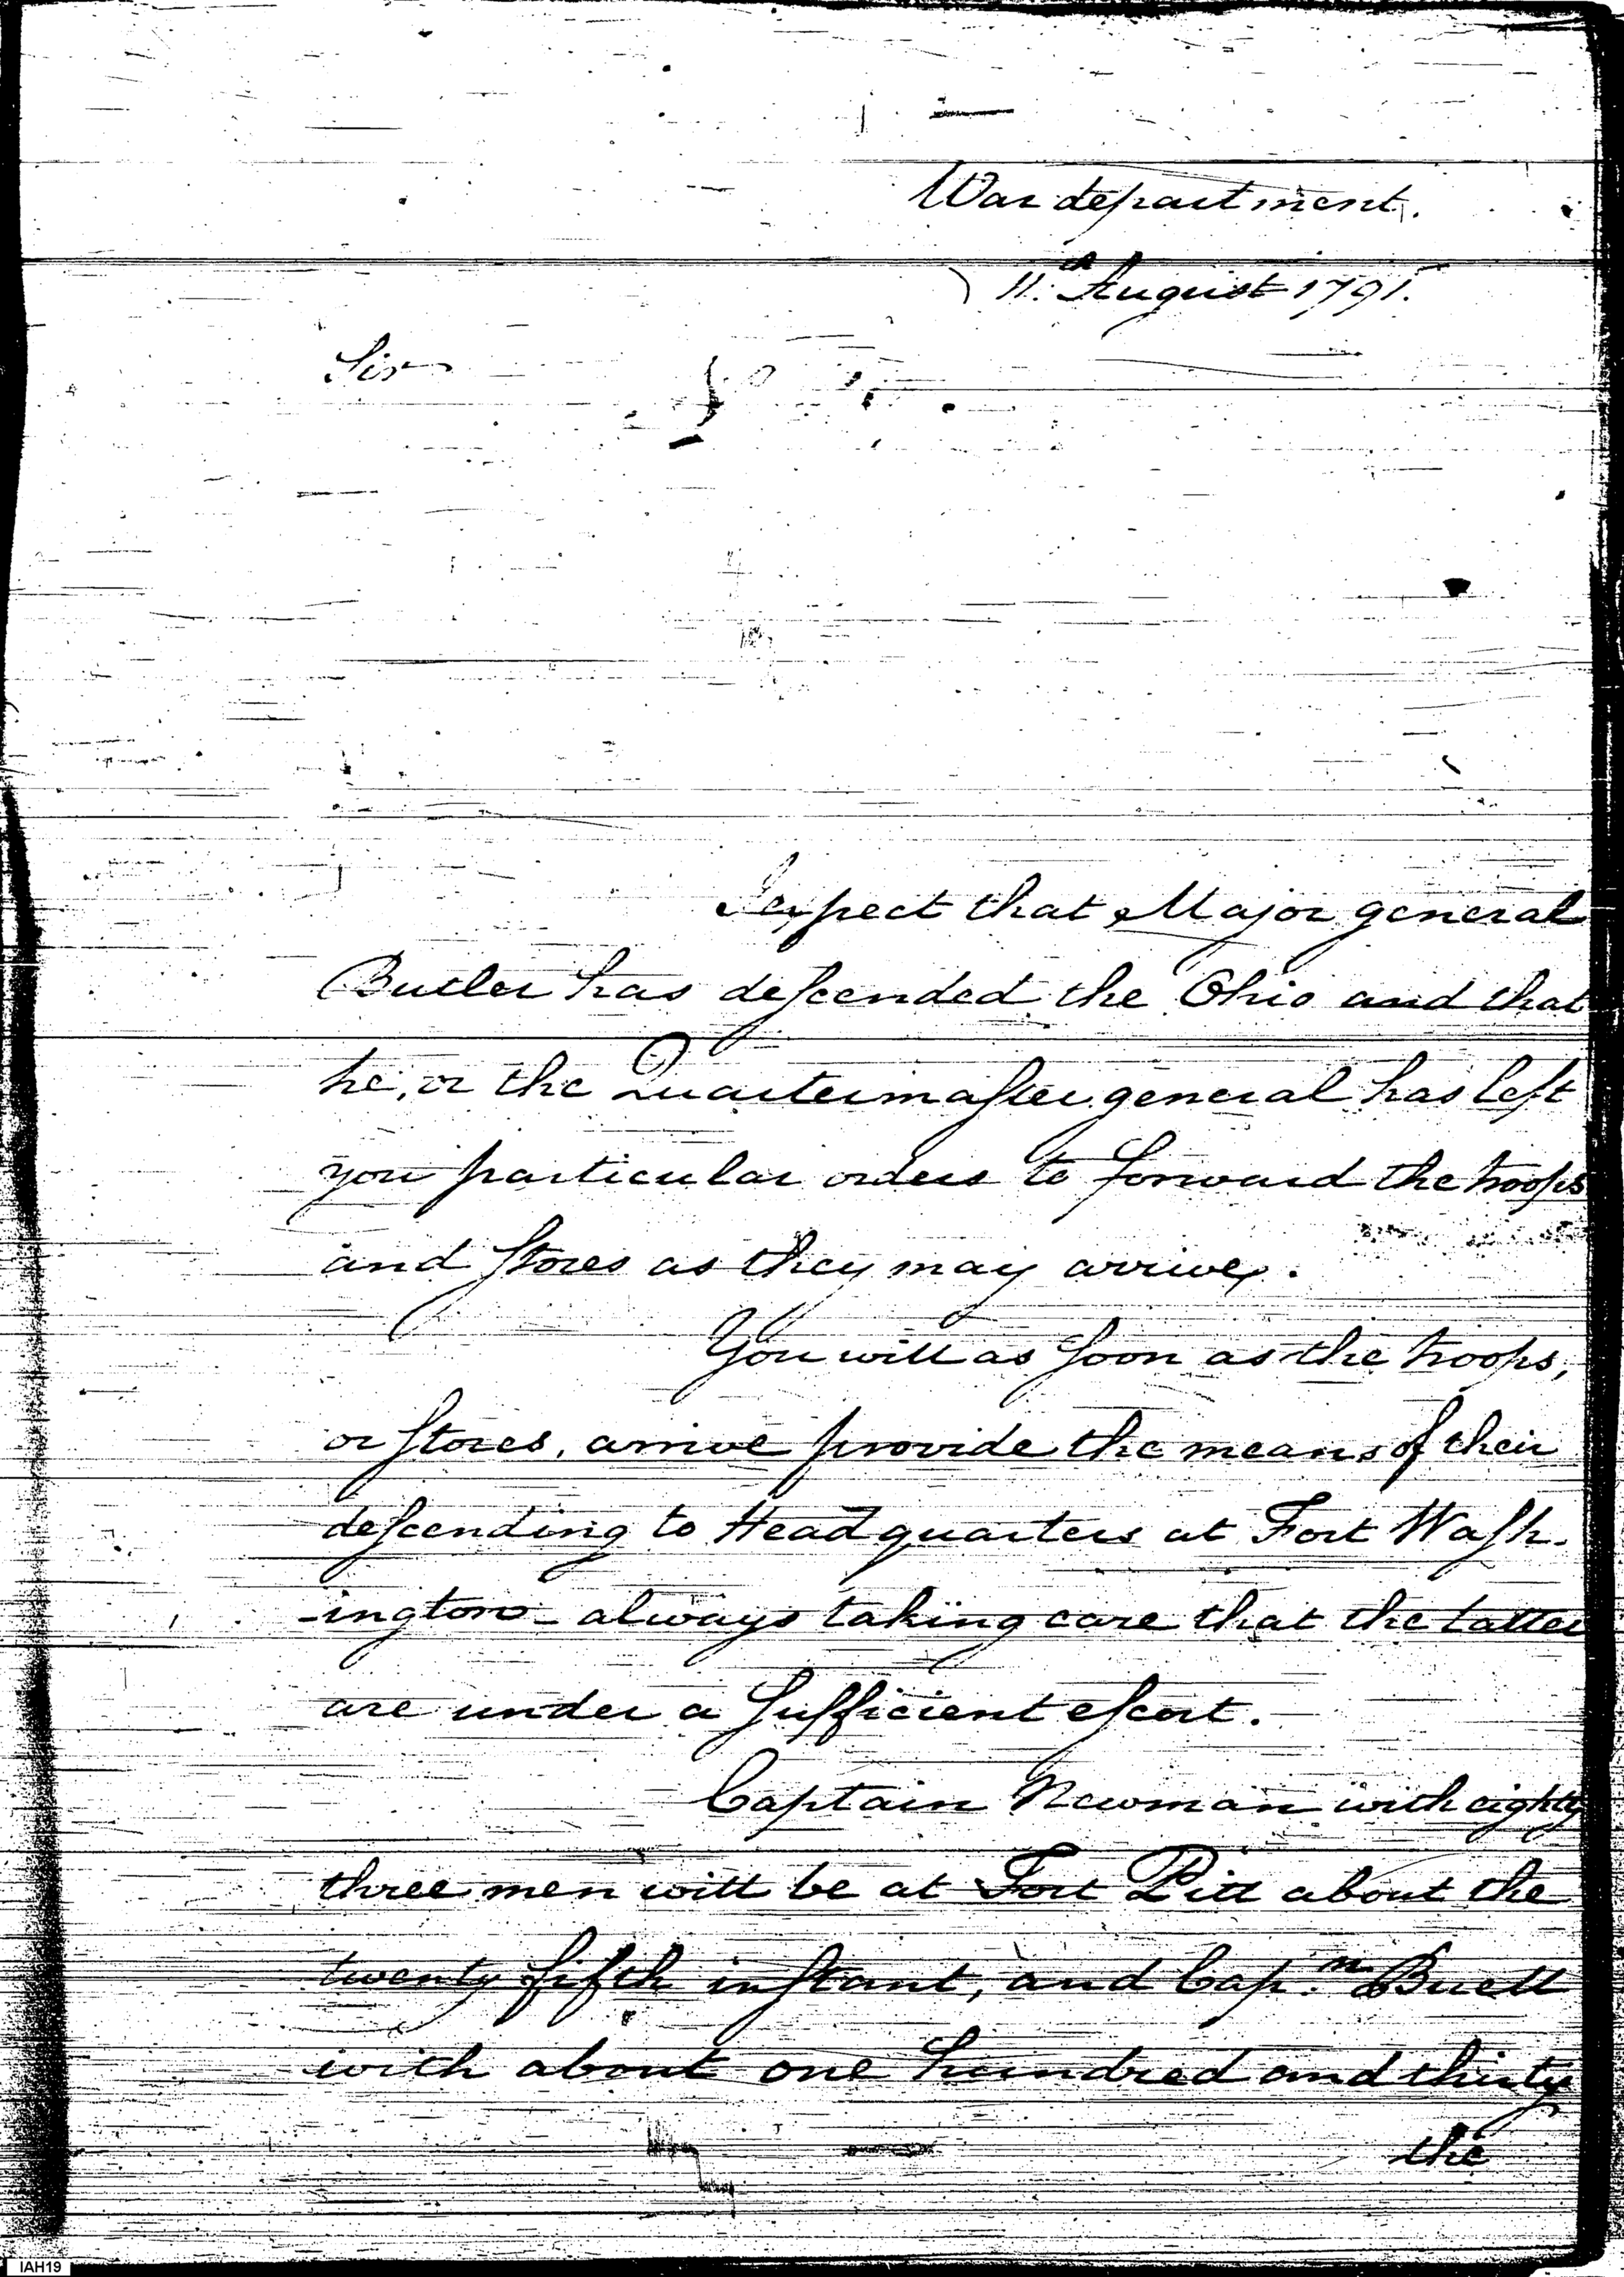 War department.
11.th August 1791.
Sir
I expect that Major general
Butler has descended the Ohio and that
he, or the Quartermaster general has left
you particular orders to forward the troops
and stores as they may arrive.
You will as soon as the troops,
or stores, arrive provide the means of their
descending to Head quarters at Fort Wash-
-ington - always taking care that the latter
are under a sufficient escort.
Captain Newman with eighty
three men will be at Fort Pitt about the
twenty fifth instant, and Cap.n Buell
with about one hundred and thirty
the
IAH19